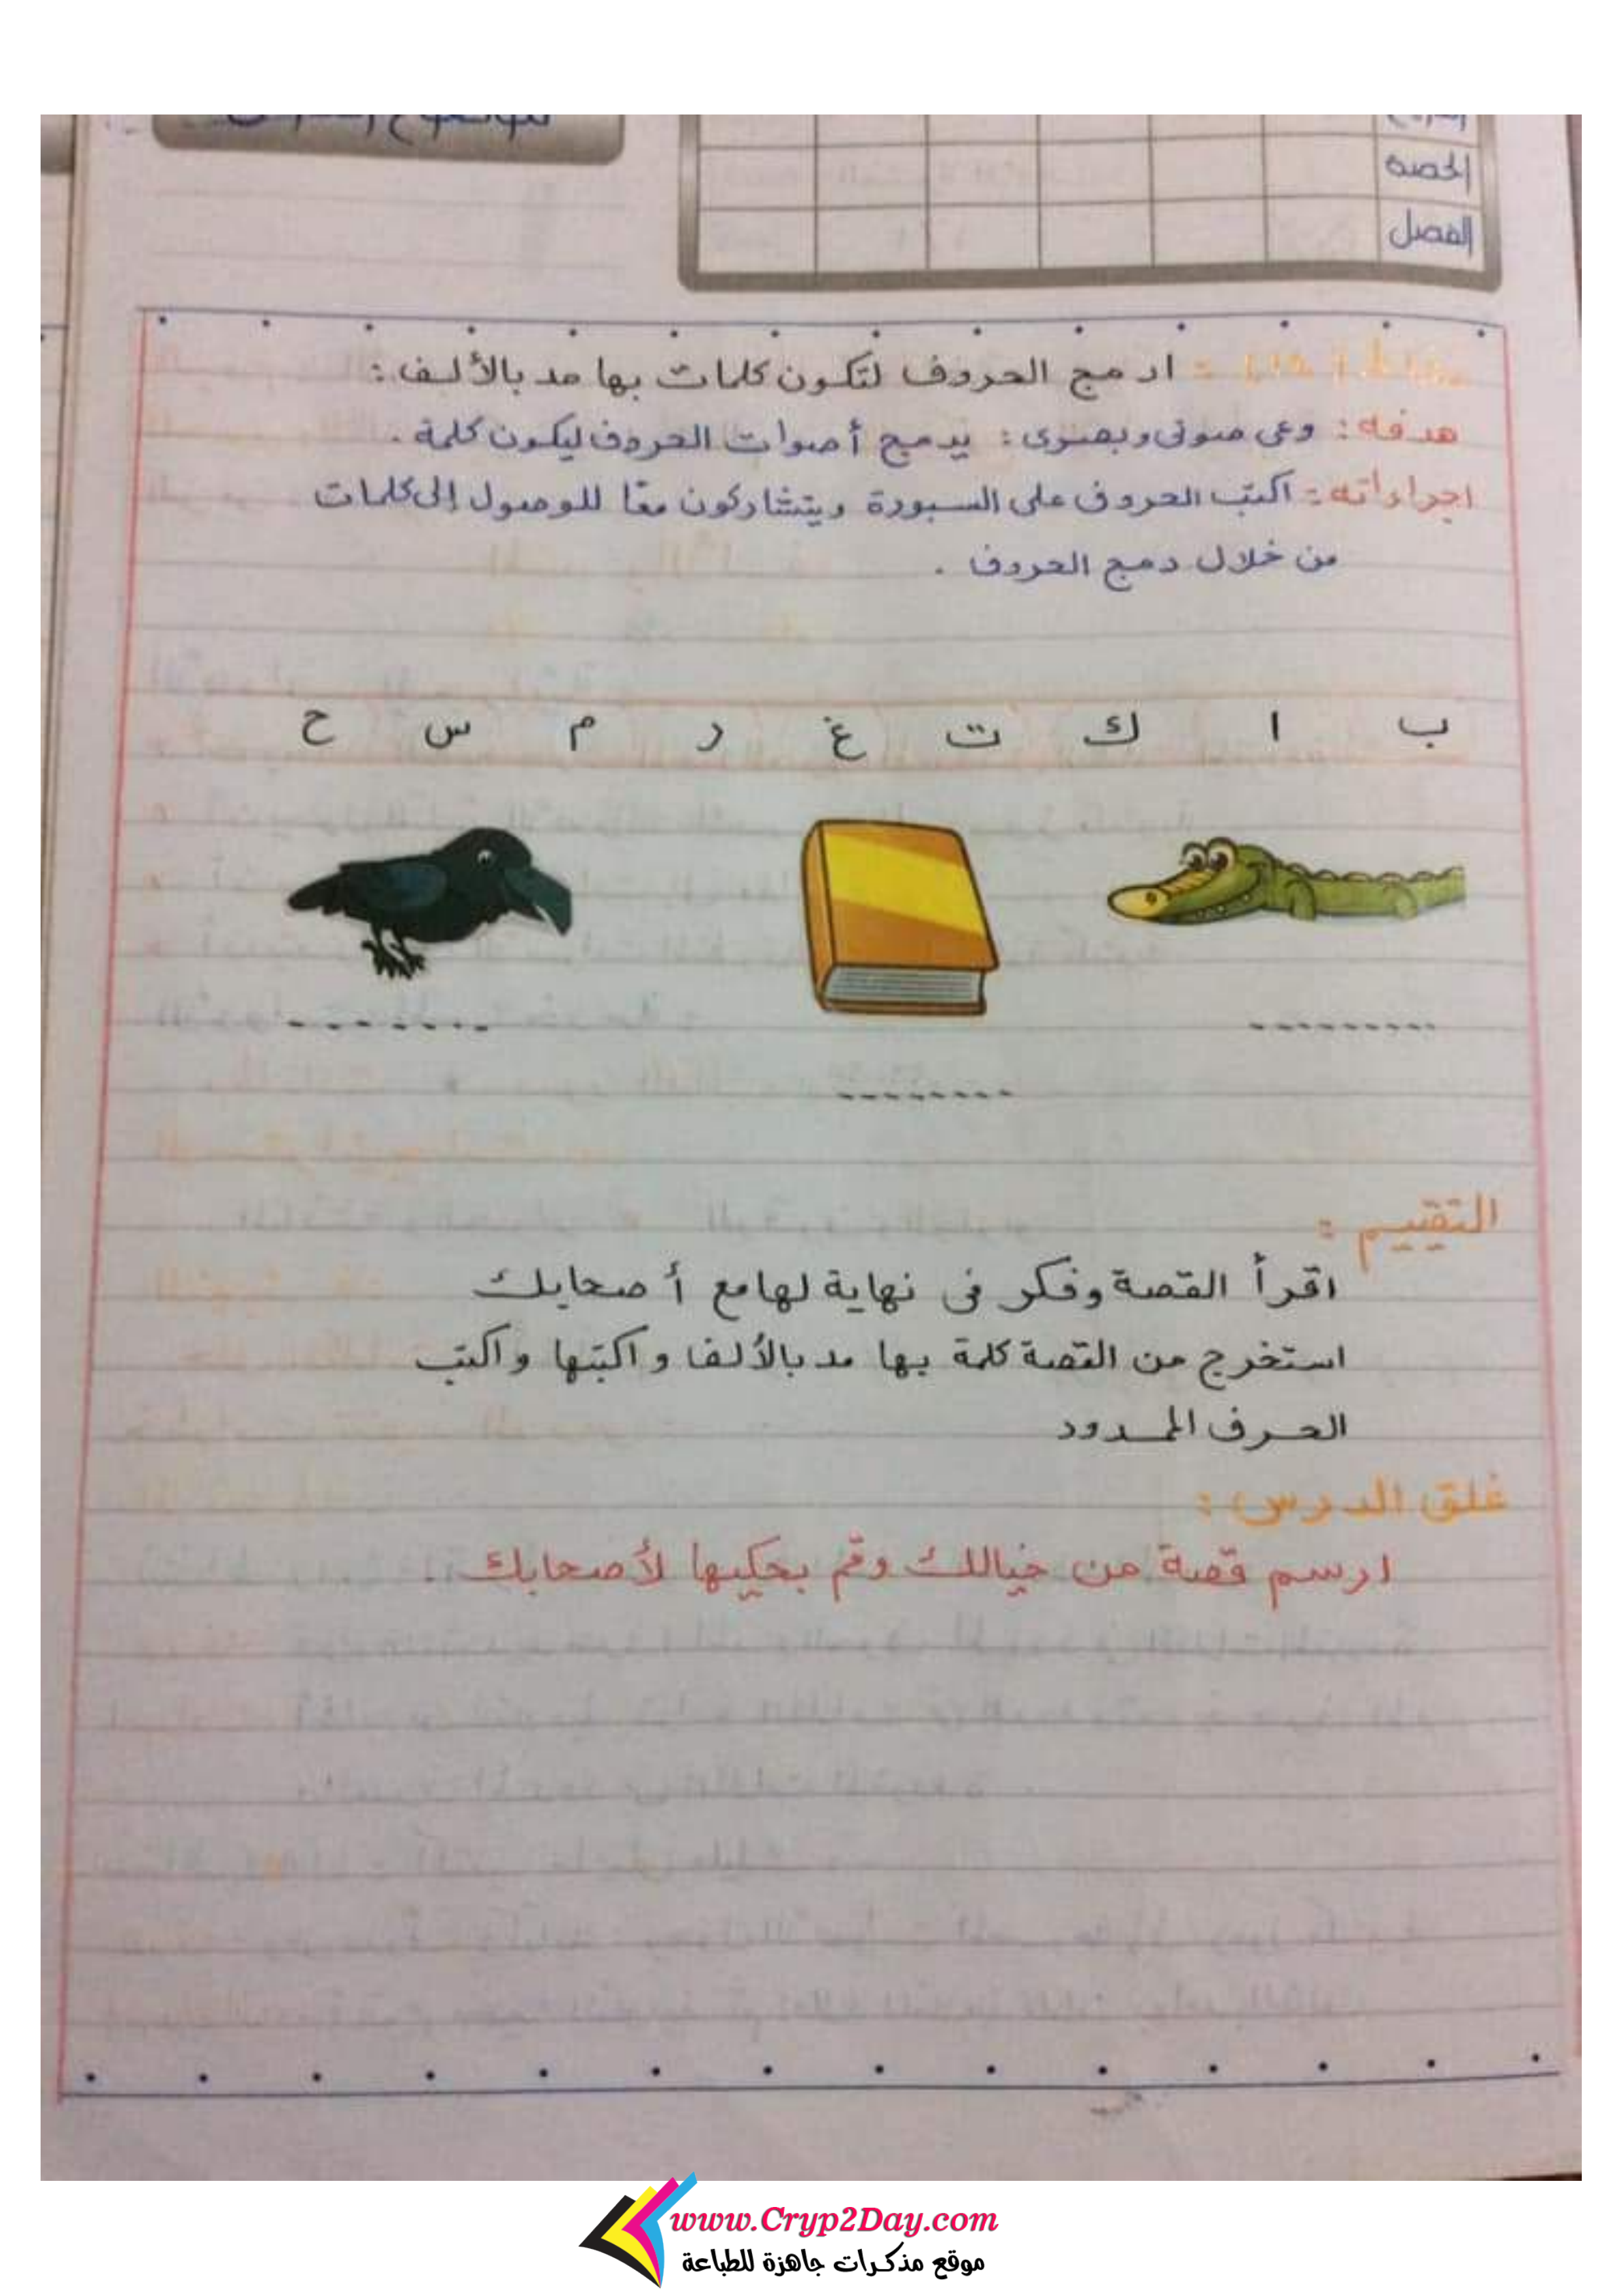 الحصة
الفصل
ادمج الحروف لتكون كلمات بها مد بالألف :
هدفه : وعى صوتى وبصرى : يدمج أصوات الحروف ليكون كلمة .
اجراءاته : اكتب الحروف على السبورة ويتشاركون معًا للوصول إلى كلمات
من خلال دمج الحروف .
ب ا ك ت غ ر م س ح
التقييم :
اقرأ القصة وفكر فى نهاية لها مع أصحابك
استخرج من القصة كلمة بها مد بالألف واكتبها واكتب
الحرف الممدود
غلق الدرس :
ارسم قصة من خيالك وقم بحكيها لأصحابك .
www.Cryp2Day.com
موقع مذكرات جاهزة للطباعة